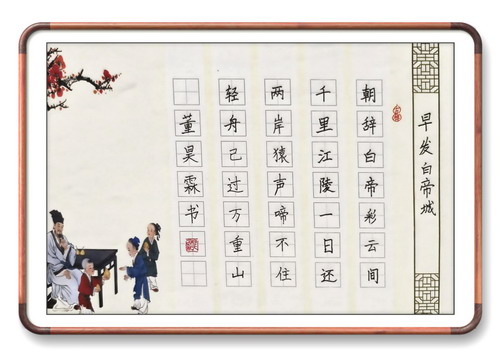 早发白帝城
朝辞白帝彩云间
千里江陵一日还
两岸猿声啼不住
轻舟已过万重山
董昊霖书